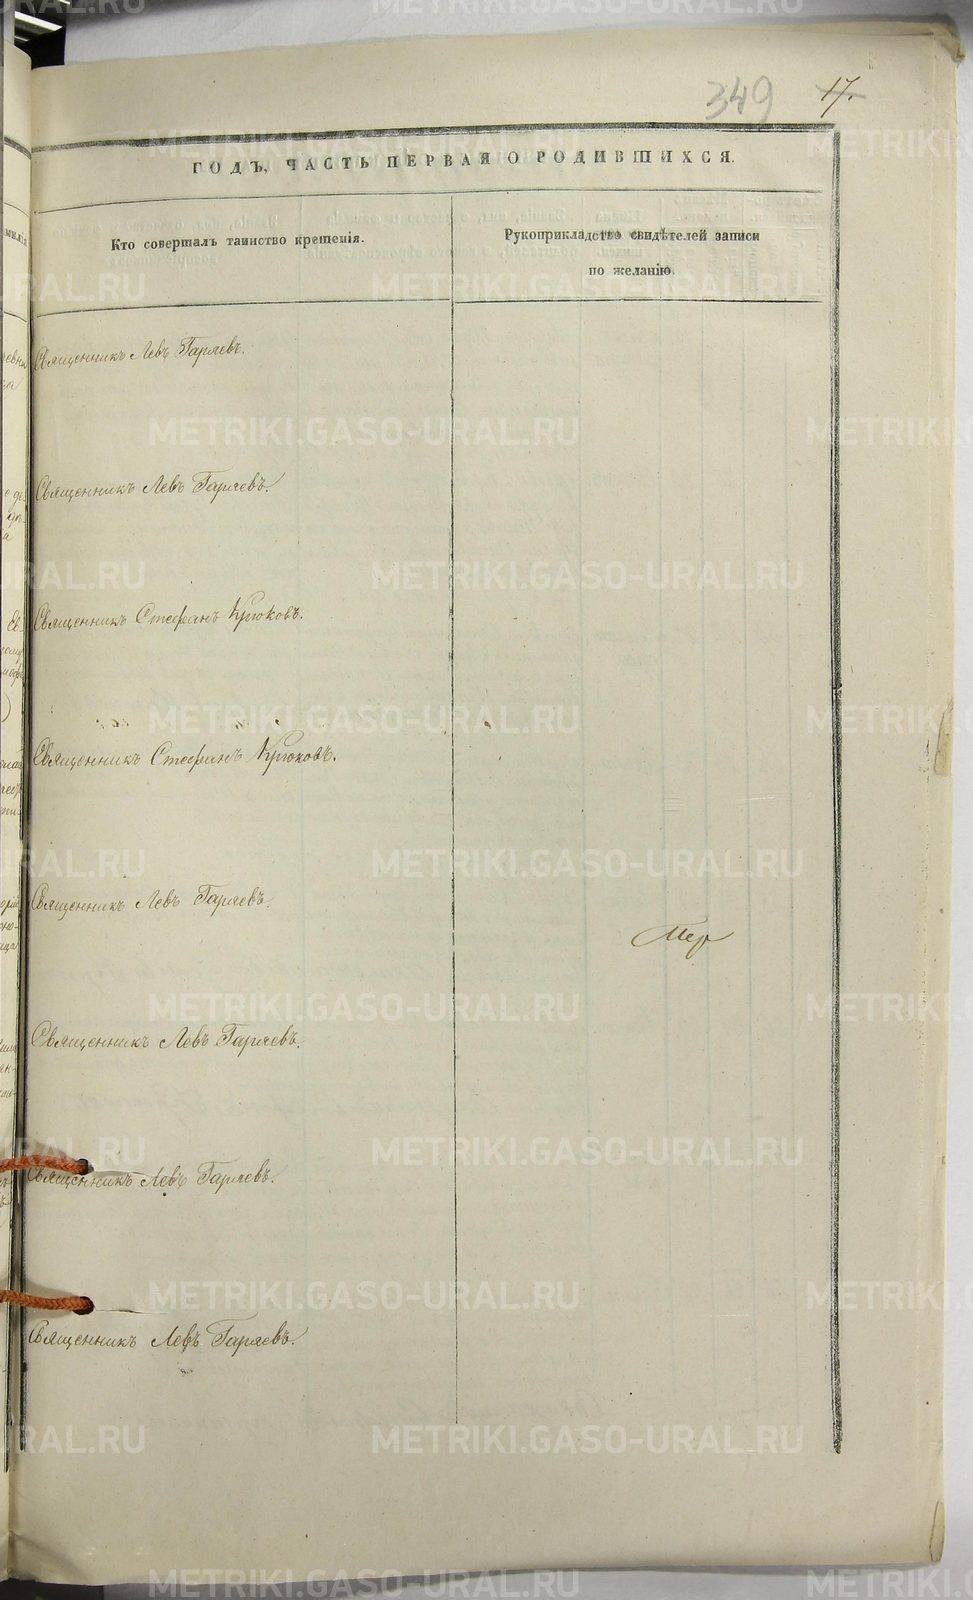 349 17.
ГОДЪ, ЧАСТЬ ПЕРВАЯ О РОДИВШИХСЯ.
Кто совершалъ таинство крещенія.
Рукоприкладство свидѣтелей записи
по желанію.
Священникъ Левъ Гаряевъ.
Священникъ Левъ Гаряевъ.
Священникъ Стефанъ Крюковъ.
Священникъ Стефанъ Крюковъ.
Священникъ Левъ Гаряевъ.
Священникъ Левъ Гаряевъ.
Священникъ Левъ Гаряевъ.
Священникъ Левъ Гаряевъ.
METRIKI.GASO-URAL.RU